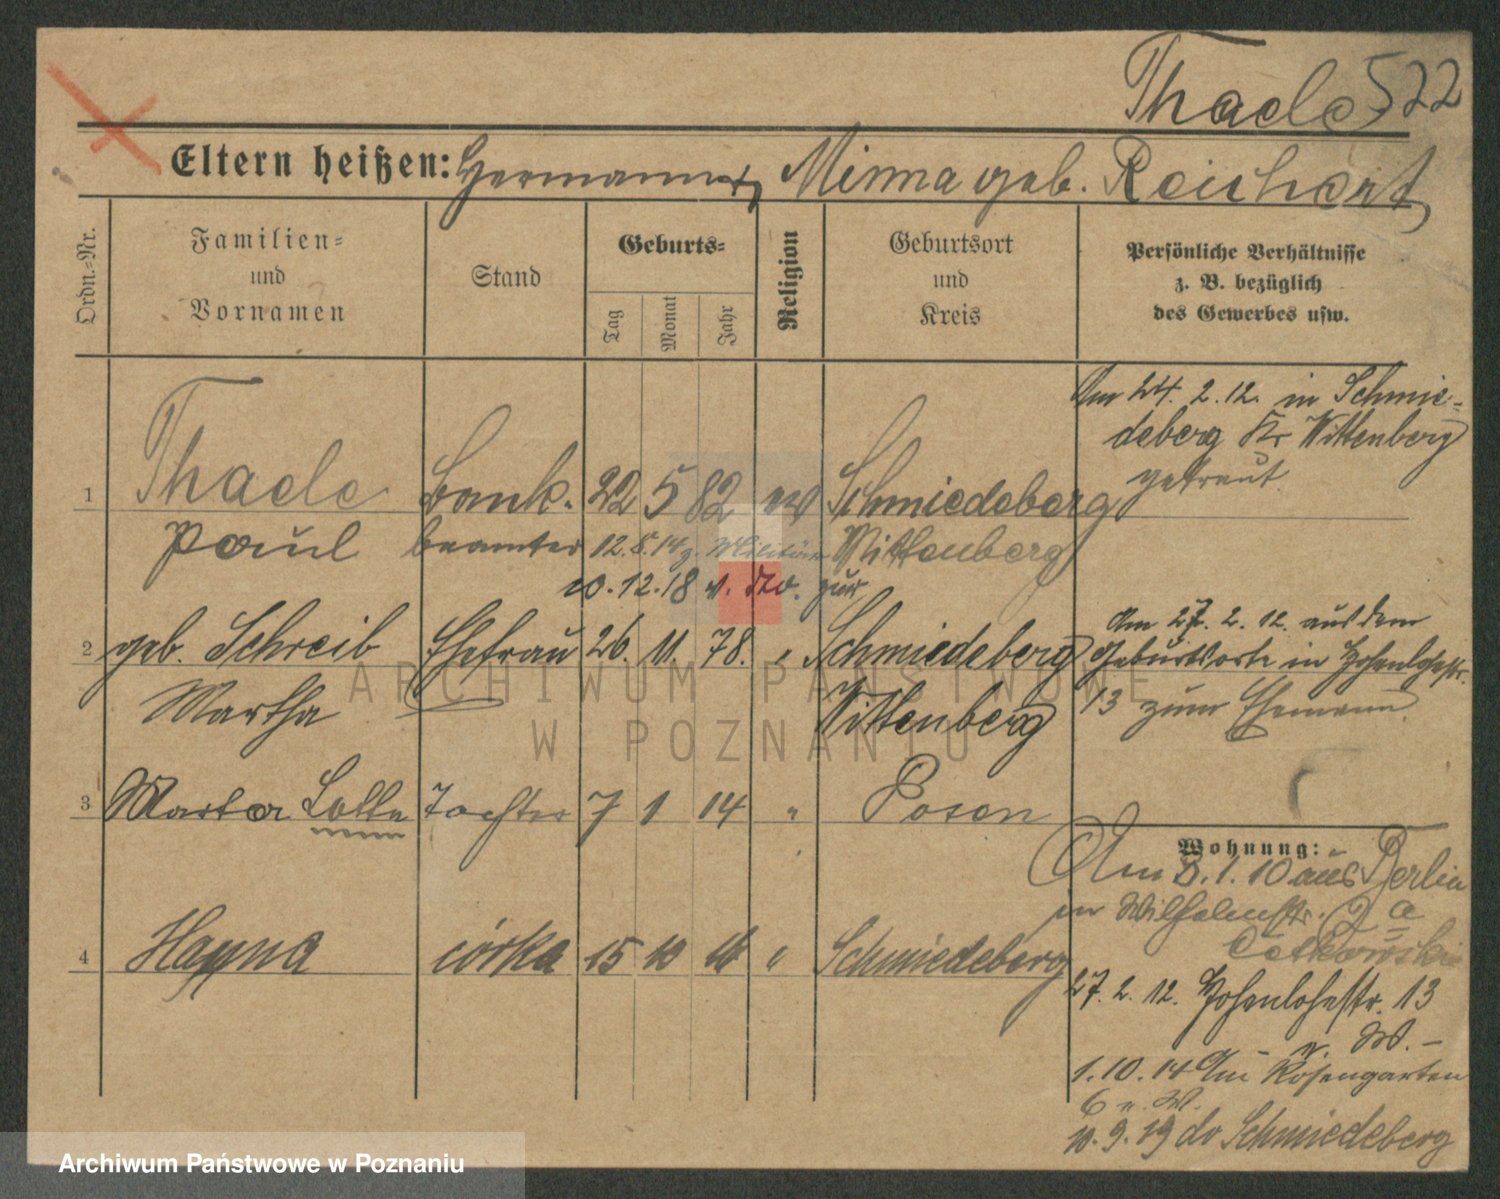 Thaele 522
Eltern heißen: Hermann, Minna geb. Reichert
Ordn.-Nr.
Familien-
und
Vornamen
Stand
Geburts-
Tag
Monat
Jahr
Religion
Geburtsort
und
Kreis
Persönliche Verhältnisse
z. B. bezüglich
des Gewerbes usw.
Am 24. 2. 12. in Schmie-
deberg Kr Wittenberg
getraut
1 Thaele Bank- 22 5 82 ev Schmiedeberg
Paul beamter 12. 8. 14 z. Militär Wittenberg
10. 12. 18 v. zur
2 geb. Schreib Ehefrau 26. 11. 78. " Schmiedeberg
Martha Wittenberg
Am 27. 2. 12. aus dem
Geburtsorte in Hohenlohestr.
13 zum Ehemann
3 Marta Lotte Tochter 7 1 14 " Posen
4 Hanna córka 15 10 " Schmiedeberg
Wohnung:
Am 8. 1. 10 aus Berlin
in Wilhelmstr. 2 a
27. 2. 12. Hohenlohestr. 13
v. W. -
1. 10. 14 Am Rosengarten
6 v. W.
10. 9. 19 Schmiedeberg
ARCHIWUM PAŃSTWOWE
W POZNANIU
Archiwum Państwowe w Poznaniu